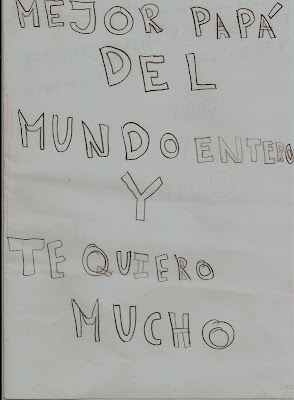 MEJOR PAPÁ
DEL
MUNDO ENTERO
Y
TE QUIERO
MUCHO